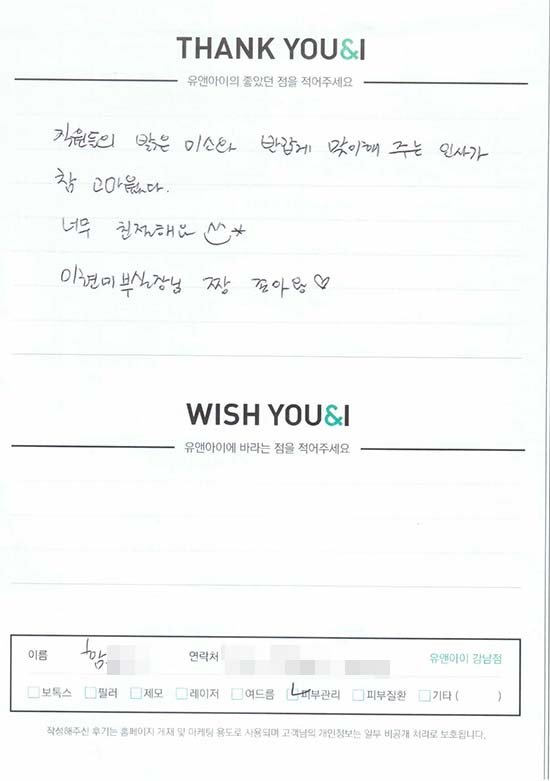 THANK YOU&I
유앤아이의 좋았던 점을 적어주세요
직원들의 밝은 미소와 반갑게 맞이해 주는 인사가
참 고마웠다.
너무 친절해요
이현미부실장님 짱 조아용♡
WISH YOU&I
유앤아이에 바라는 점을 적어주세요
이름 함 연락처 유앤아이 강남점
보톡스 필러 제모 레이저 여드름 피부관리 피부질환 기타 ( )
작성해주신 후기는 홈페이지 게재 및 마케팅 용도로 사용되며 고객님의 개인정보는 일부 비공개 처리로 보호됩니다.